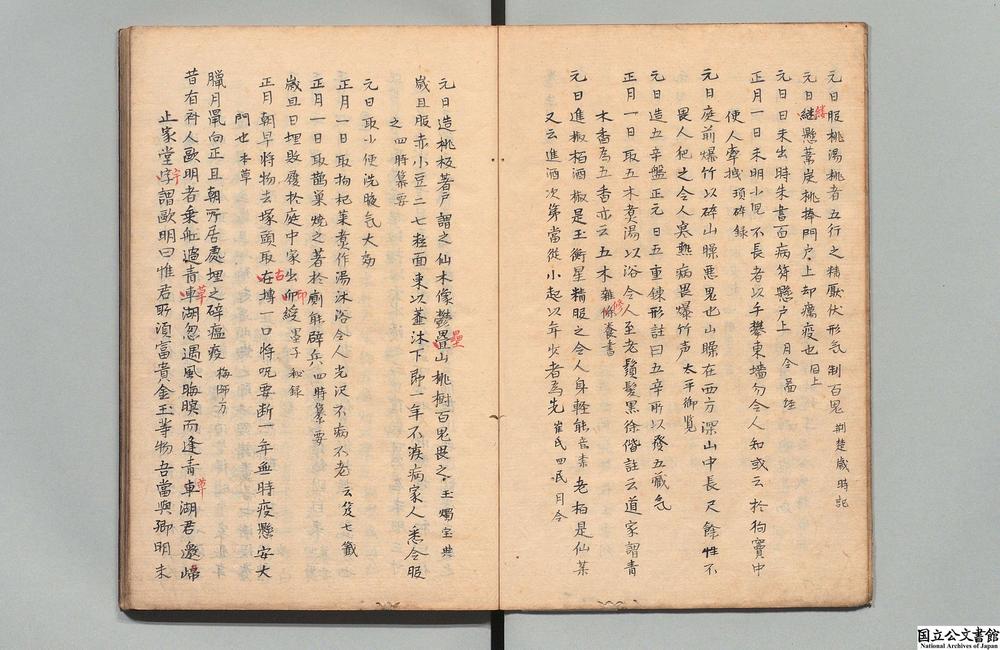 元日服桃湯桃者五行之精厭伏形気制百鬼 荆楚歳時記
元日継懸葦炭桃棒門户上却癘疫也 同上
元日日未出時朱書百病符懸户上 月令啚経
正月一日未明小児不長者以手攀東墻勿令人知或云於狗竇中
使人牽拽 瑣碎録
元日庭前爆竹以碎山臊悪鬼也山臊在西方深山中長尺餘性不
畏人犯之令人寒熱病畏爆竹声 太平御覧
元日造五辛盤正元日五重錬形註曰五辛所以発五蔵気
正月一日取五木煮湯以浴令人至老鬚髪黒徐偕註云道家謂青
木香為五香亦云五木 雑脩養書
元日進椒栢酒椒是玉衡星精服之令人身軽能 老栢是仙薬
又云進酒次第当従小起以年少者為先 崔氏四民月令
元日造桃板著户謂之仙木像鬱畾山桃樹百鬼畏之 玉燭宝典
歳旦服赤小豆二七粒面東以虀汁下即一年不疾病家人悉令服
之 四時纂要
元日取小便洗腋気大効
正月一日取枸杞菜煮作湯沐浴令人光沢不病不老 云笈七籤
正月一日取鵲巣焼之著於廁能辟兵 四時纂要
歳旦日埋敗履於庭中家出印綬 墨子秘録
正月朝早将物去塚頭取古塼一口将呪要断一年無時疫懸安大
門也 本草
臘月鼠向正旦朝所居處埋之碎瘟疫 梅師方
昔有商人歐明者乗舩過青草湖忽遇風晦暝而逢青草湖君邀帰
止家堂宇謂歐明曰惟君所湏富貴金玉等物吾当與卿明未
国立公文書館
National Archives of Japan